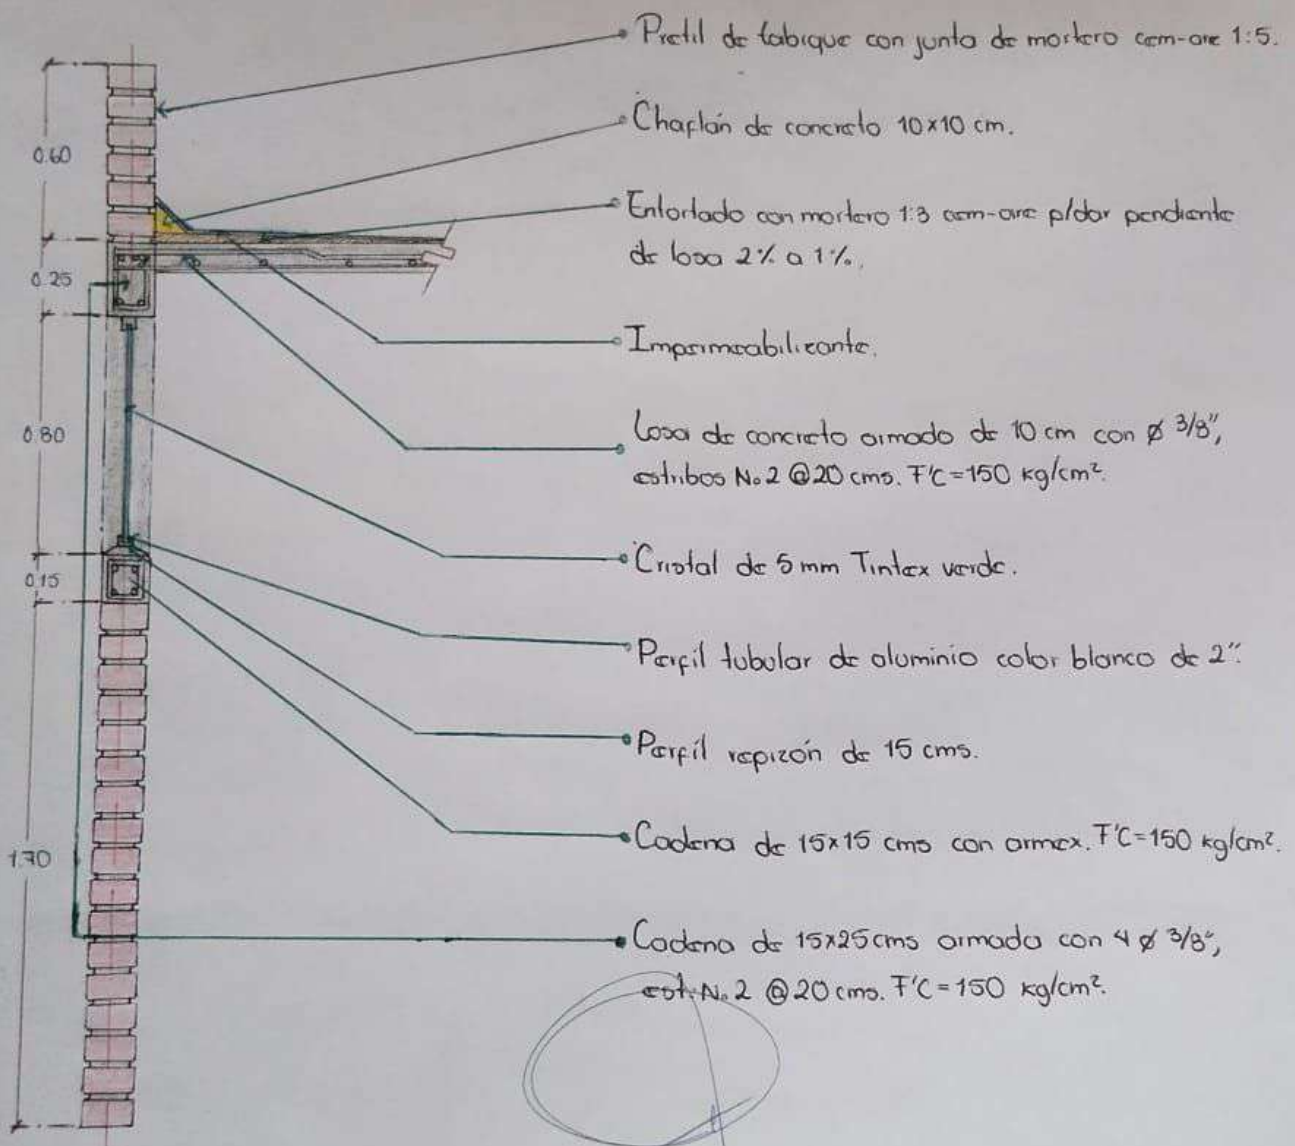 Pretil de tabique con junta de mortero cem-are 1:5.
Chaflán de concreto 10x10 cm.
Entortado con mortero 1:3 cem-are p/dar pendiente
de losa 2% a 1%.
Impermeabilizante.
Losa de concreto armado de 10 cm con ø 3/8",
estribos No.2 @20 cms. F'C=150 kg/cm².
Cristal de 5 mm Tintex verde.
Perfil tubular de aluminio color blanco de 2".
Perfil repizón de 15 cms.
Cadena de 15x15 cms con armex. F'C=150 kg/cm².
Cadena de 15x25cms armada con 4 ø 3/8",
est. No.2 @20 cms. F'C=150 kg/cm².
0.60
0.25
0.80
0.15
1.70